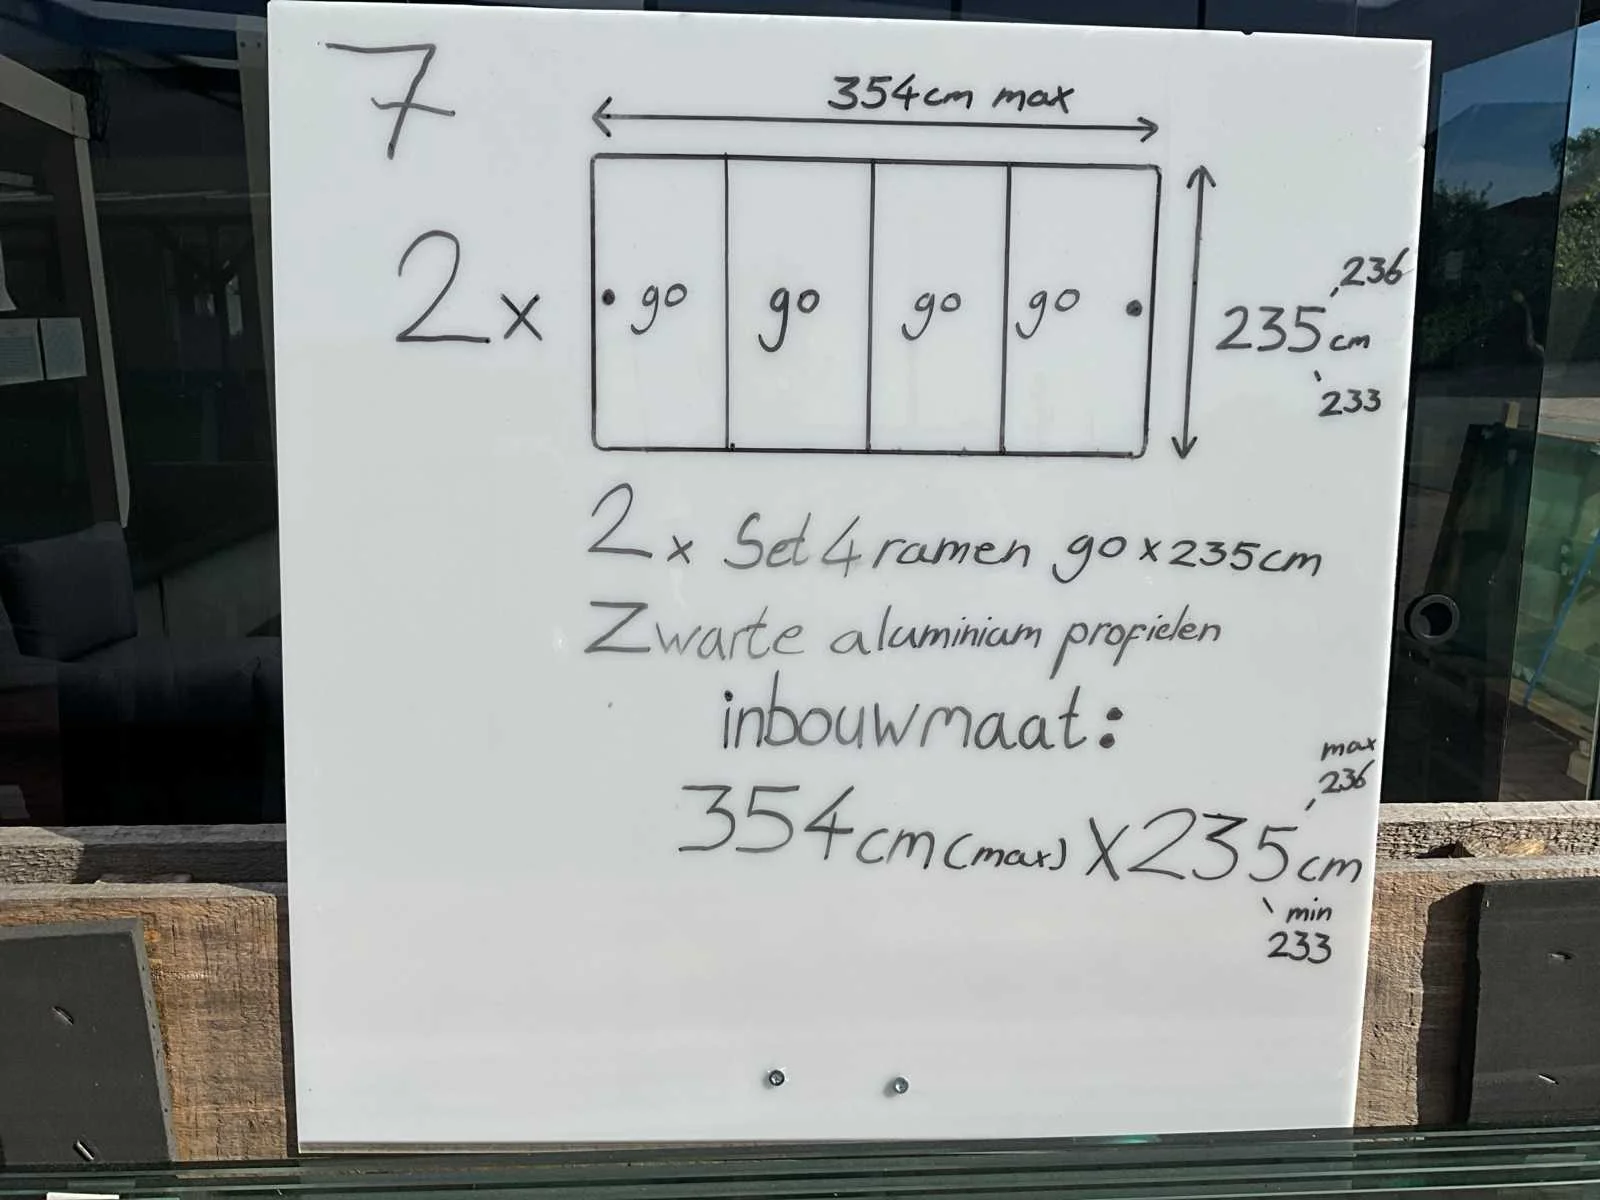 7
354cm max
2x
90 90 90 90
236
235cm
233
2x Set 4 ramen 90x235cm
Zwarte aluminium profielen
inbouwmaat:
max
236
354cm (max) X 235cm
min
233